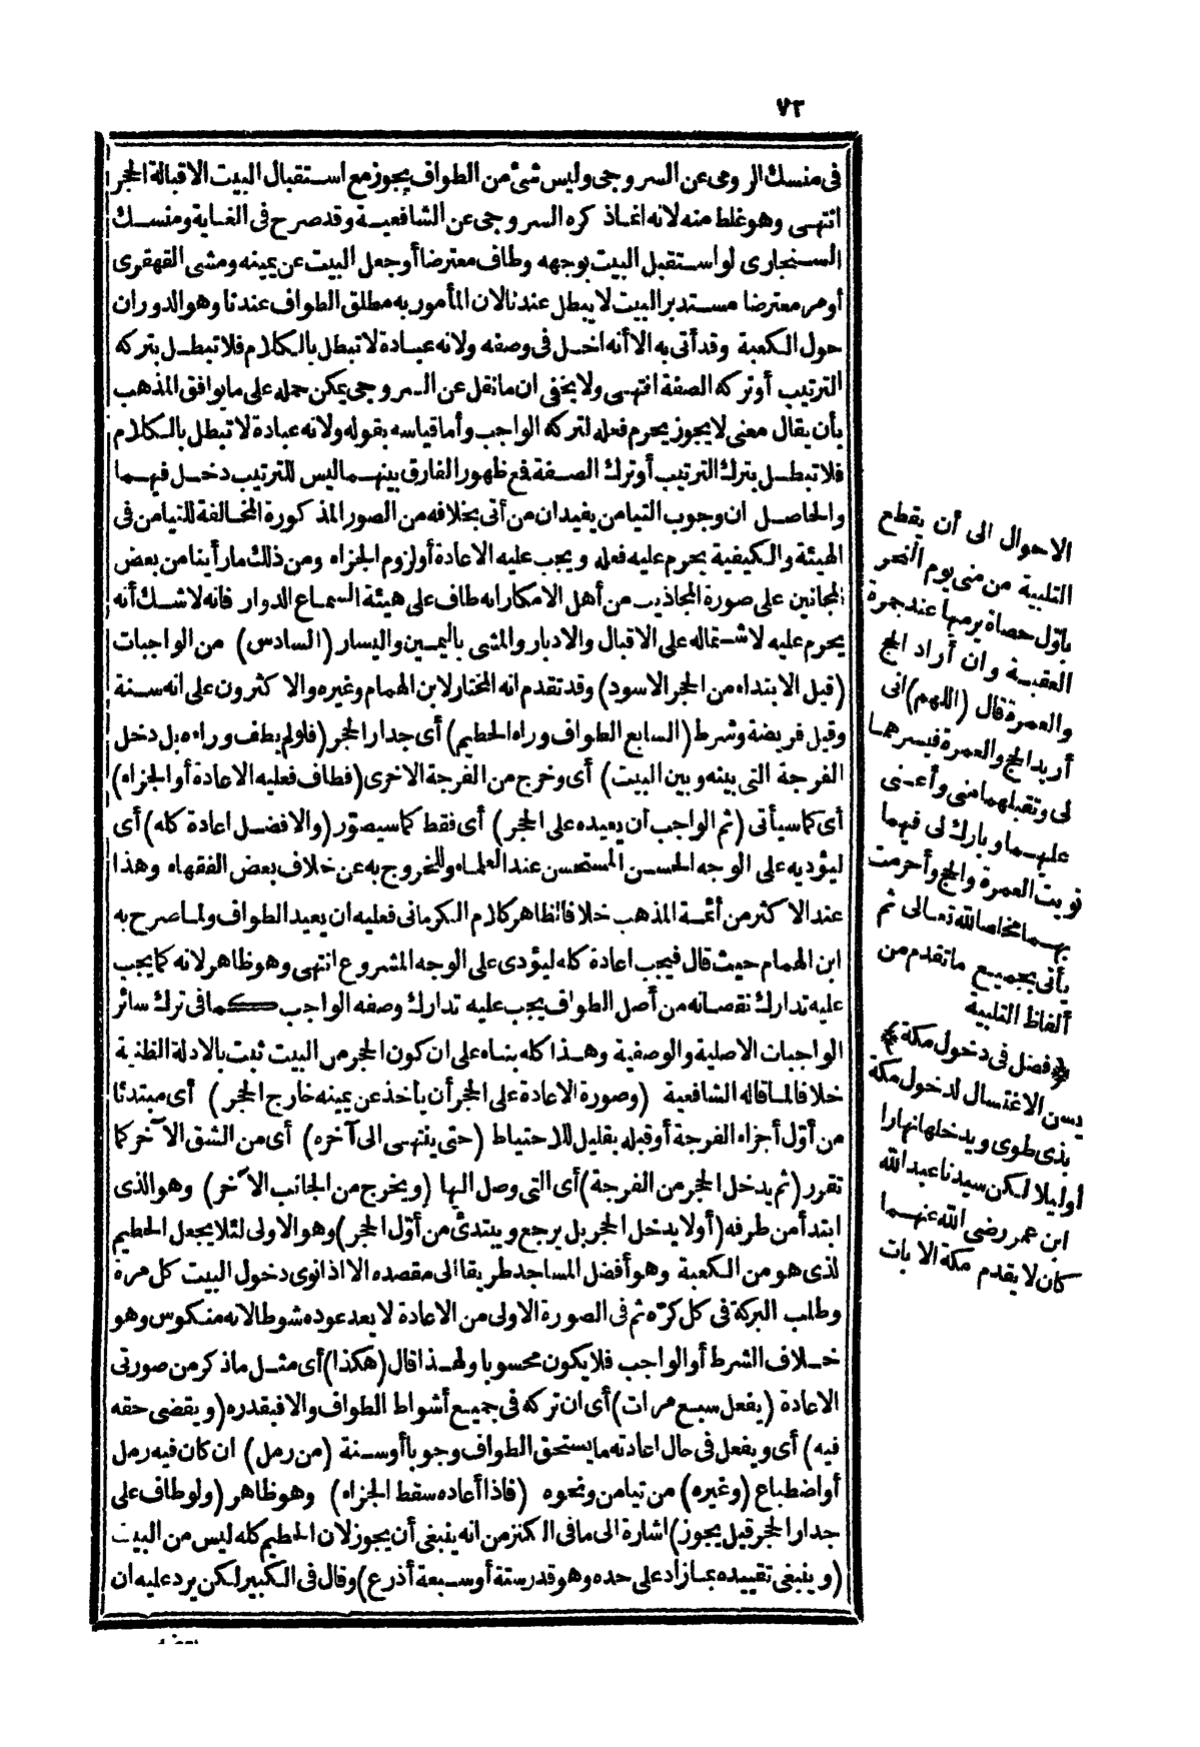 ٧٢
فى منسك الرومى عن السروجى وليس شئ من الطواف يجوز مع استقبال البيت الاقبالة الحجر
انتهى وهو غلط منه لانه انما ذكره السروجى عن الشافعية وقد صرح فى الغاية ومنسك
السنجارى لو استقبل البيت بوجهه وطاف معترضا أو جعل البيت عن يمينه ومشى القهقرى
أو مر معترضا مستدبر البيت لا يبطل عندنا لان المأمور به مطلق الطواف عندنا وهو الدوران
حول الكعبة وقد أتى به الا أنه اخل فى وصفه ولانه عبادة لا تبطل بالكلام فلا تبطل بتركه
الترتيب أو تركه الصفة انتهى ولا يخفى ان ما نقل عن السروجى يمكن حمله على ما يوافق المذهب
بأن يقال معنى لا يجوز يحرم فعله لتركه الواجب وأما قياسه بقوله ولانه عبادة لا تبطل بالكلام
فلا تبطل بترك الترتيب أو ترك الصفة فع ظهور الفارق بينهما ليس للترتيب دخل فيهما
والحاصل ان وجوب التيامن يفيد ان من أتى بخلافه من الصور المذكورة المخالفة للتيامن فى
الهيئة والكيفية يحرم عليه فعله ويجب عليه الاعادة أو لزوم الجزاء ومن ذلك ما رأينا من بعض
المجانين على صورة المجاذيب من أهل الامكار انه طاف على هيئة السماع الدوار فانه لا شك أنه
يحرم عليه لاشتماله على الاقبال والادبار والمشى باليمين واليسار (السادس) من الواجبات
(قبل الابتداء من الحجر الاسود) وقد تقدم انه المختار لابن الهمام وغيره والاكثرون على انه سنة
وقيل فريضة وشرط (السابع الطواف وراء الحطيم) أى جدار الحجر (فلو لم يطف وراءه بل دخل
الفرجة التى بينه وبين البيت) أى وخرج من الفرجة الاخرى (فطاف فعليه الاعادة أو الجزاء)
أى كما سيأتى (ثم الواجب أن يعيده على الحجر) أى فقط كما سيصوّر (والافضل اعادة كله) أى
ليؤديه على الوجه الحسن المستحسن عند العلماء وللخروج به عن خلاف بعض الفقهاء وهذا
عند الاكثر من أئمة المذهب خلافا لظاهر كلام الكرمانى فعليه ان يعيد الطواف ولما صرح به
ابن الهمام حيث قال فيجب اعادة كله ليؤدى على الوجه المشروع انتهى وهو ظاهر لانه كما يجب
عليه تدارك نقصانه من أصل الطواف يجب عليه تدارك وصفه الواجب كما فى ترك سائر
الواجبات الاصلية والوصفية وهذا كله بناء على ان كون الحجر من البيت ثبت بالادلة الظنية
خلافا لما قاله الشافعية (وصورة الاعادة على الحجر أن يأخذ عن يمينه خارج الحجر) أى مبتدئا
من أوّل أجزاء الفرجة أو قبله بقليل للاحتياط (حتى ينتهى الى آخره) أى من الشق الآخر كما
تقرر (ثم يدخل الحجر من الفرجة) أى التى وصل اليها (ويخرج من الجانب الآخر) وهو الذى
ابتدأ من طرفه (أو لا يدخل الحجر بل يرجع ويبتدئ من أوّل الحجر) وهو الاولى لئلا يجعل الحطيم
لذى هو من الكعبة وهو أفضل المساجد طريقا الى مقصده الا اذا نوى دخول البيت كل مرة
وطلب البركة فى كل كرّه ثم فى الصورة الاولى من الاعادة لا يعد عوده شوطا لانه منكوس وهو
خلاف الشرط أو الواجب فلا يكون محسوبا ولهذا قال (هكذا) أى مثل ما ذكر من صورتى
الاعادة (يفعل سبع مرات) أى ان تركه فى جميع أشواط الطواف والا فبقدره (ويقضى حقه
فيه) أى ويفعل فى حال اعادته ما يستحق الطواف وجوبا أو سنة (من رمل) ان كان فيه رمل
أو اضطباع (وغيره) من تيامن ونحوه (فاذا أعاده سقط الجزاء) وهو ظاهر (ولو طاف على
جدار الحجر قيل يجوز) اشارة الى ما فى الكنز من انه ينبغى أن يجوز لان الحطيم كله ليس من البيت
(وينبغى تقييده بما زاد على حده وهو قدر ستة أو سبعة أذرع) وقال فى الكبير لكن يرد عليه ان
الاحوال الى أن يقطع
التلبية من منى يوم النحر
بأوّل حصاة يرميها عند جمرة
العقبة وان أراد الحج
والعمرة قال (اللهم) انى
أريد الحج والعمرة فيسرهما
لى وتقبلهما منى وأعنى
عليهما وبارك لى فيهما
نويت العمرة والحج وأحرمت
بهما مخلصا لله تعالى ثم
يأتى بجميع ما تقدم من
ألفاظ التلبية
﴿فصل فى دخول مكة﴾
يسن الاغتسال لدخول مكة
بذى طوى ويدخلها نهارا
أو ليلا لكن سيدنا عبد الله
ابن عمر رضى الله عنهما
كان لا يقدم مكة الا بات